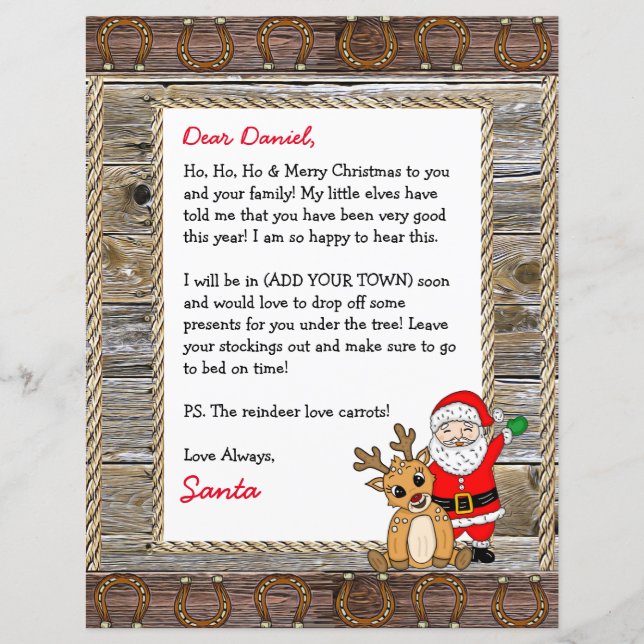 Dear Daniel,
Ho, Ho, Ho & Merry Christmas to you
and your family! My little elves have
told me that you have been very good
this year! I am so happy to hear this.
I will be in (ADD YOUR TOWN) soon
and would love to drop off some
presents for you under the tree! Leave
your stockings out and make sure to go
to bed on time!
PS. The reindeer love carrots!
Love Always,
Santa